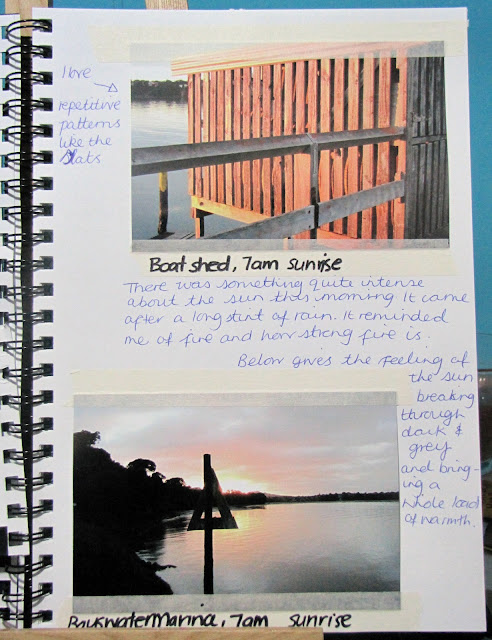 I love
repetitive
patterns
like the
slats
Boatshed, 7am sunrise
There was something quite intense
about the sun this morning. It came
after a long stint of rain. It reminded
me of fire and how strong fire is.
Below gives the feeling of
the sun
breaking
through
dark &
grey
and bring-
ing a
whole load
of warmth.
Marina, 7am sunrise